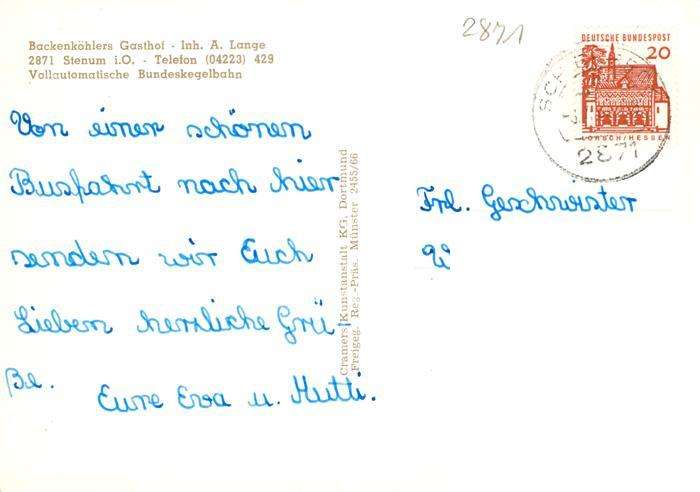 Backenköhlers Gasthof - Inh. A. Lange
2871 Stenum i.O. - Telefon (04223) 429
Vollautomatische Bundeskegelbahn
2871
DEUTSCHE BUNDESPOST
20
LORSCH/HESSEN
2871
Von einer schönen
Busfahrt nach hier
senden wir Euch
Lieben herzliche Grü-
ße.
Eure Eva u. Mutti.
Cramers Kunstanstalt KG, Dortmund
Freigeg. Reg.-Präs. Münster 2455/66
Frl. Geschwister